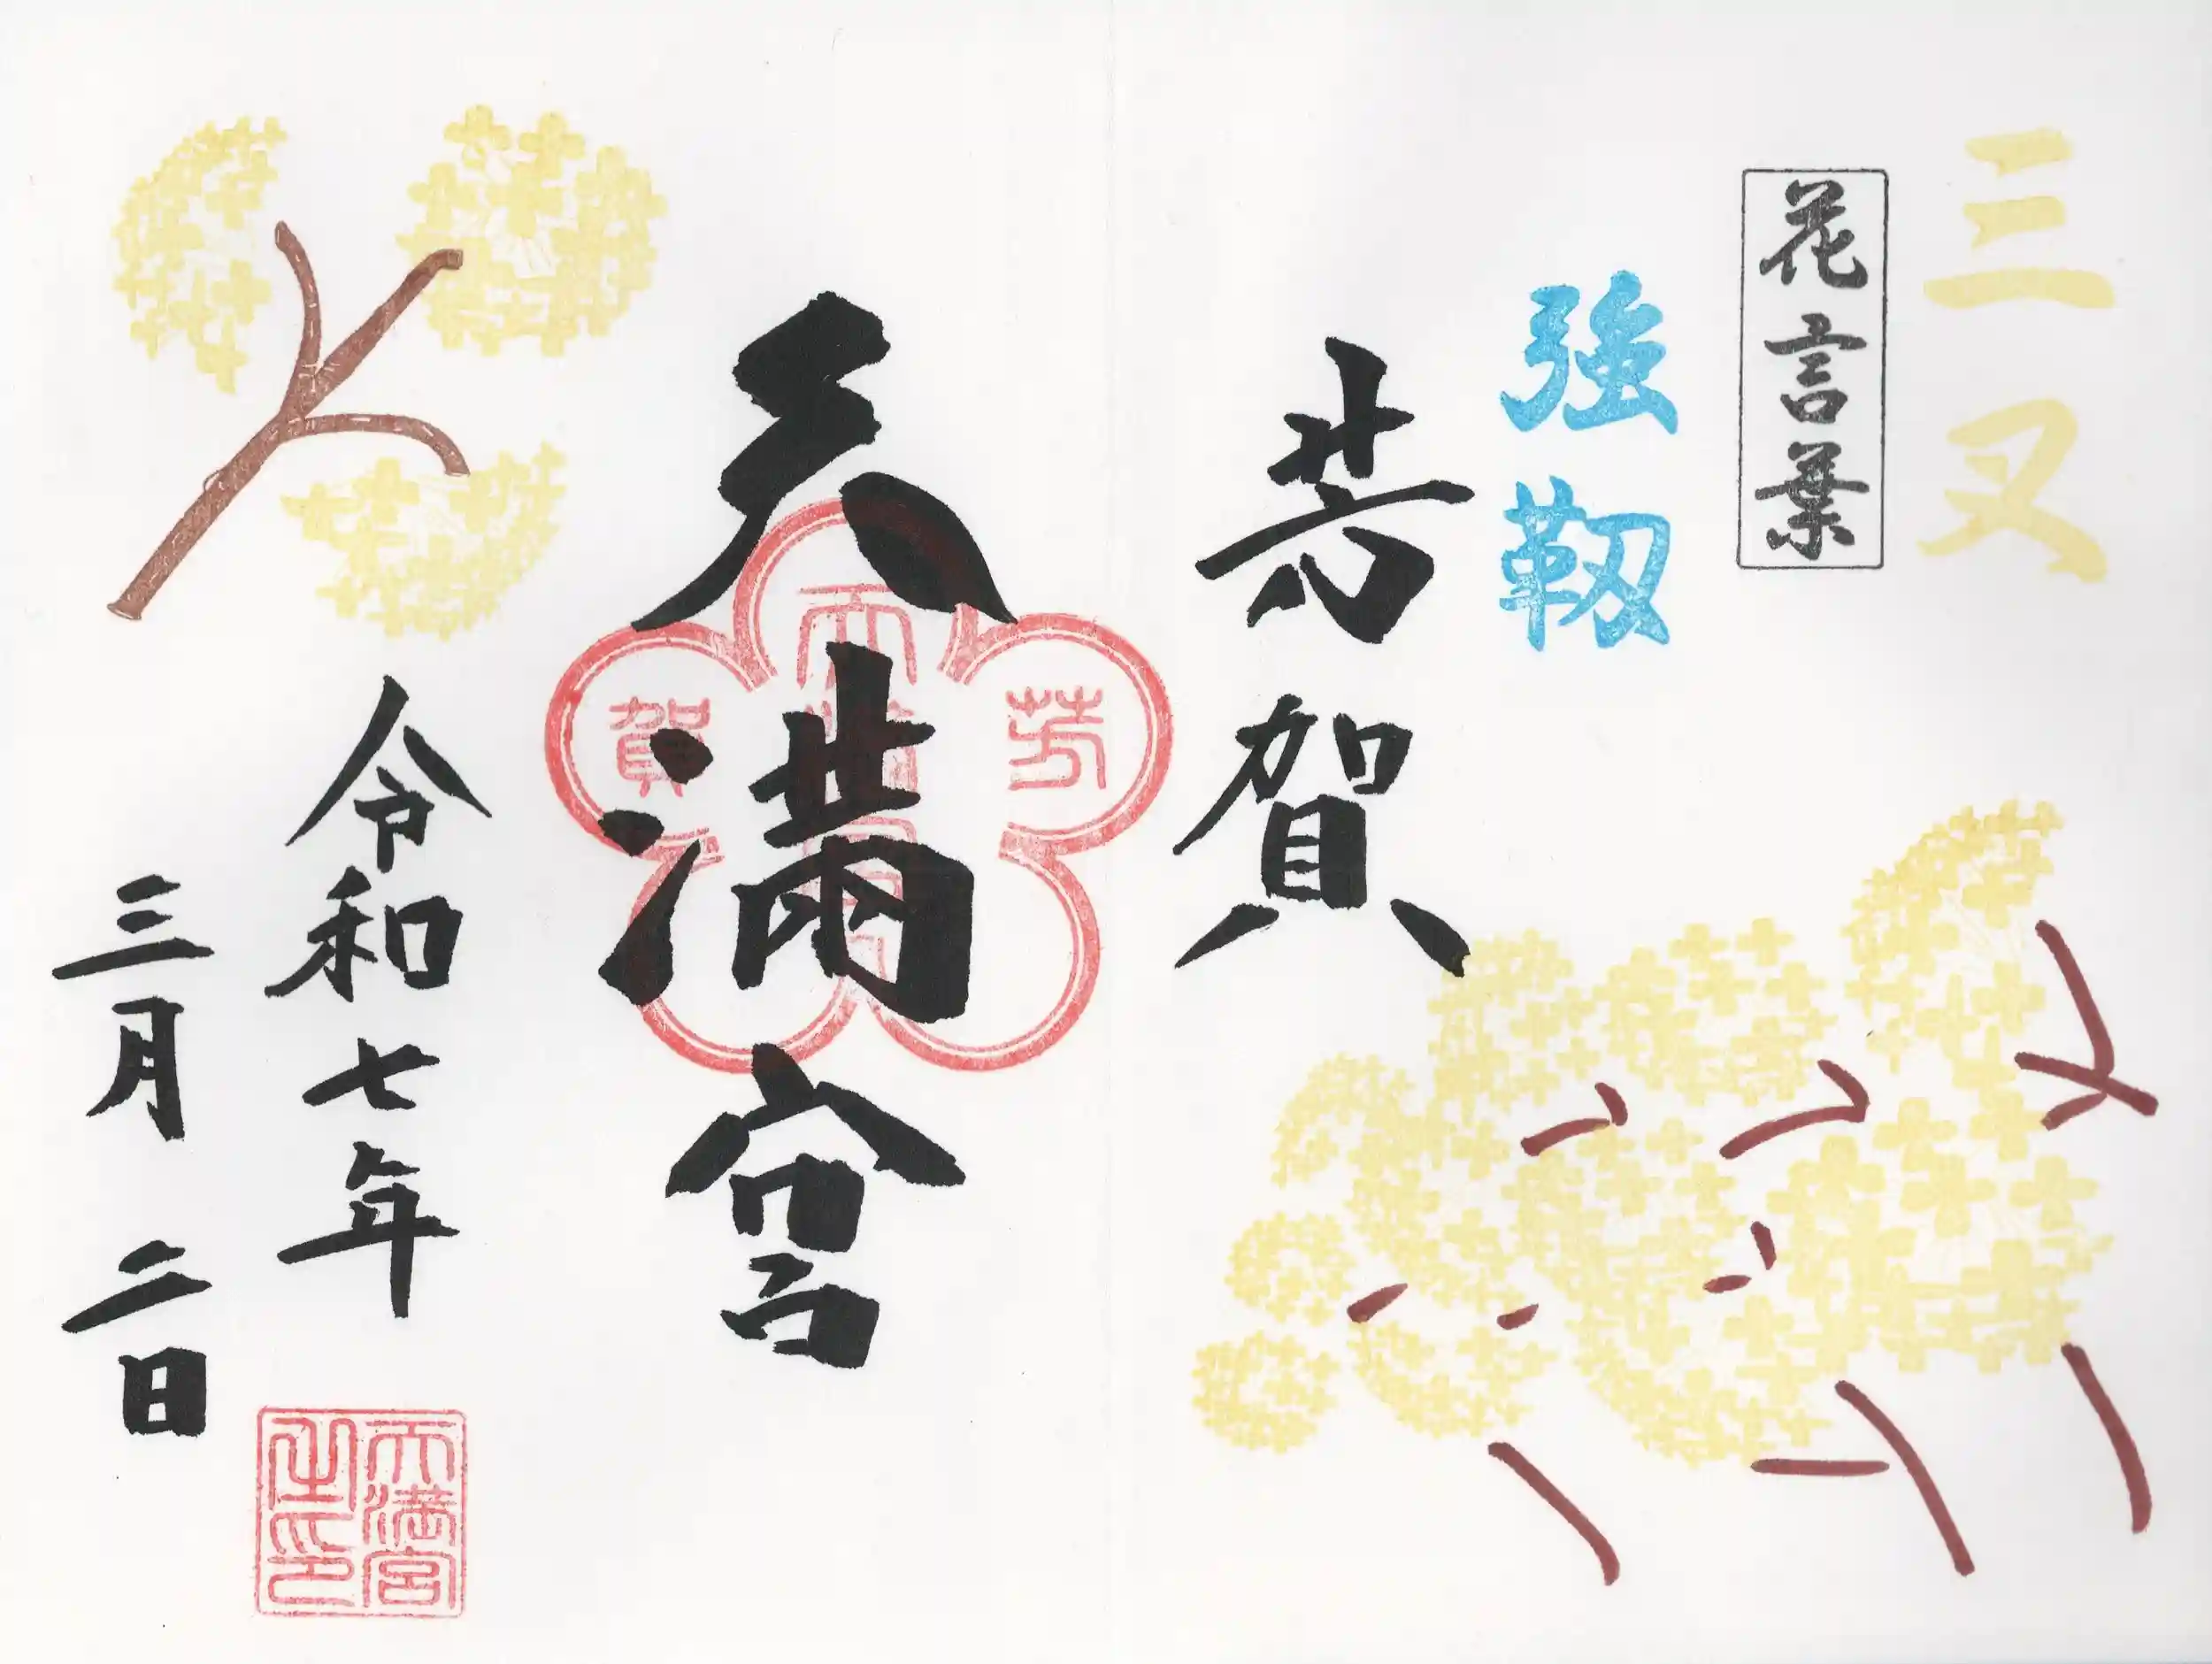 三叉
花言葉
強靱
芳賀
天満宮
芳
賀
天満宮
令和七年
三月二日
天満宮
之印